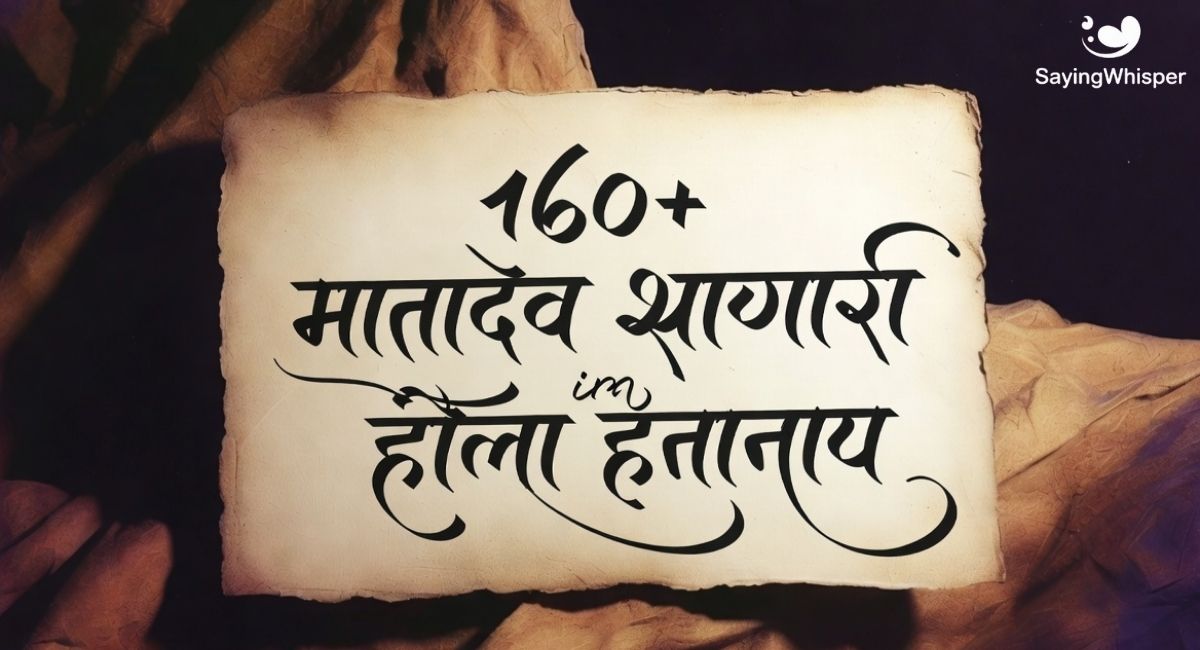 SayingWhisper
160+
मातादेव श्रागारी
in
होला हंतानाय